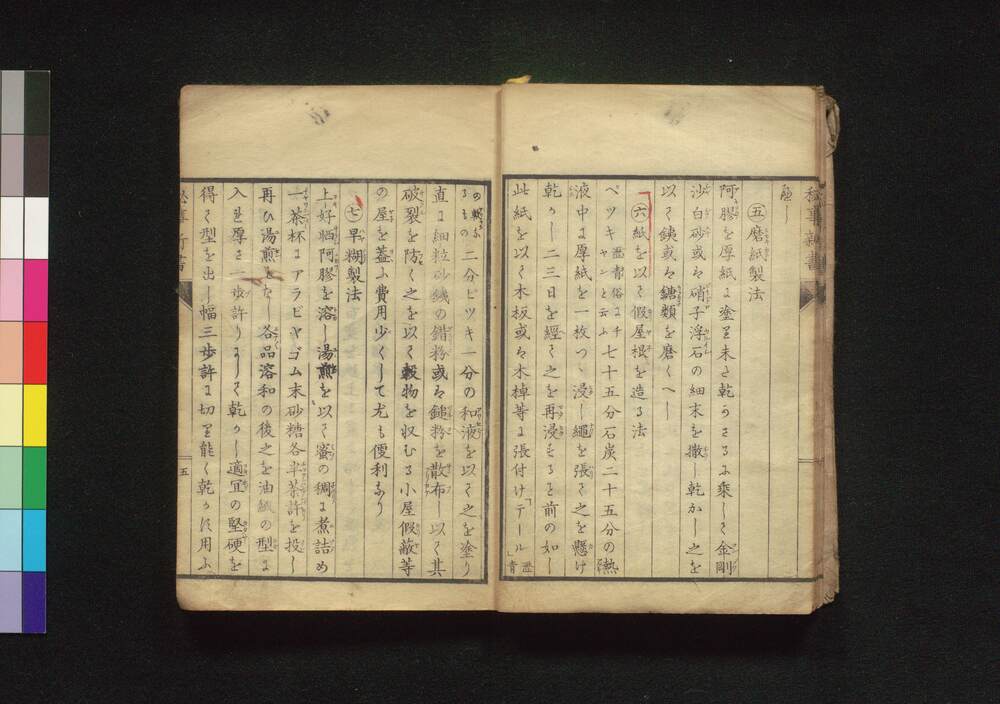 ㊄磨紙製法
阿膠を厚紙に塗り未だ乾うざるに乗じて金剛
沙白砂或は硝子浮石の細末を撒し乾かし之を
以て鉄或は鏽類を磨くへし
㊅紙を以て假屋根を造る法
ペツキ 瀝青俗にチヤンと云ふ 七十五分石炭二十五分の熱
液中に厚紙を一枚つゝ浸し繩を張て之を懸け
乾かし二三日を經て之を再浸する前の如し
此紙を以て木板或は木棹等に張付け「テール」瀝青
の軽ふるもの 二分ピツキ一分の和液を以て之を塗り
直に細粒砂鉄の錯粉或は鎚粉を散布し以て其
破裂を防く之を以て穀物を収むる小屋假蔽等
の屋を蓋ふ費用少くして尤も便利なり
㊆早糊製法
上好晒阿膠を溶し湯煎を以て蜜の稠に煮詰め
一茶杯にアラビヤゴム末砂糖各半茶許を投し
再ひ湯煎をなし各品溶和の後之を油紙の型に
入れ厚さ一歩許りにして乾かし適宜の堅硬を
得て型を出し幅三歩許に切り能く乾かし用ふ
五